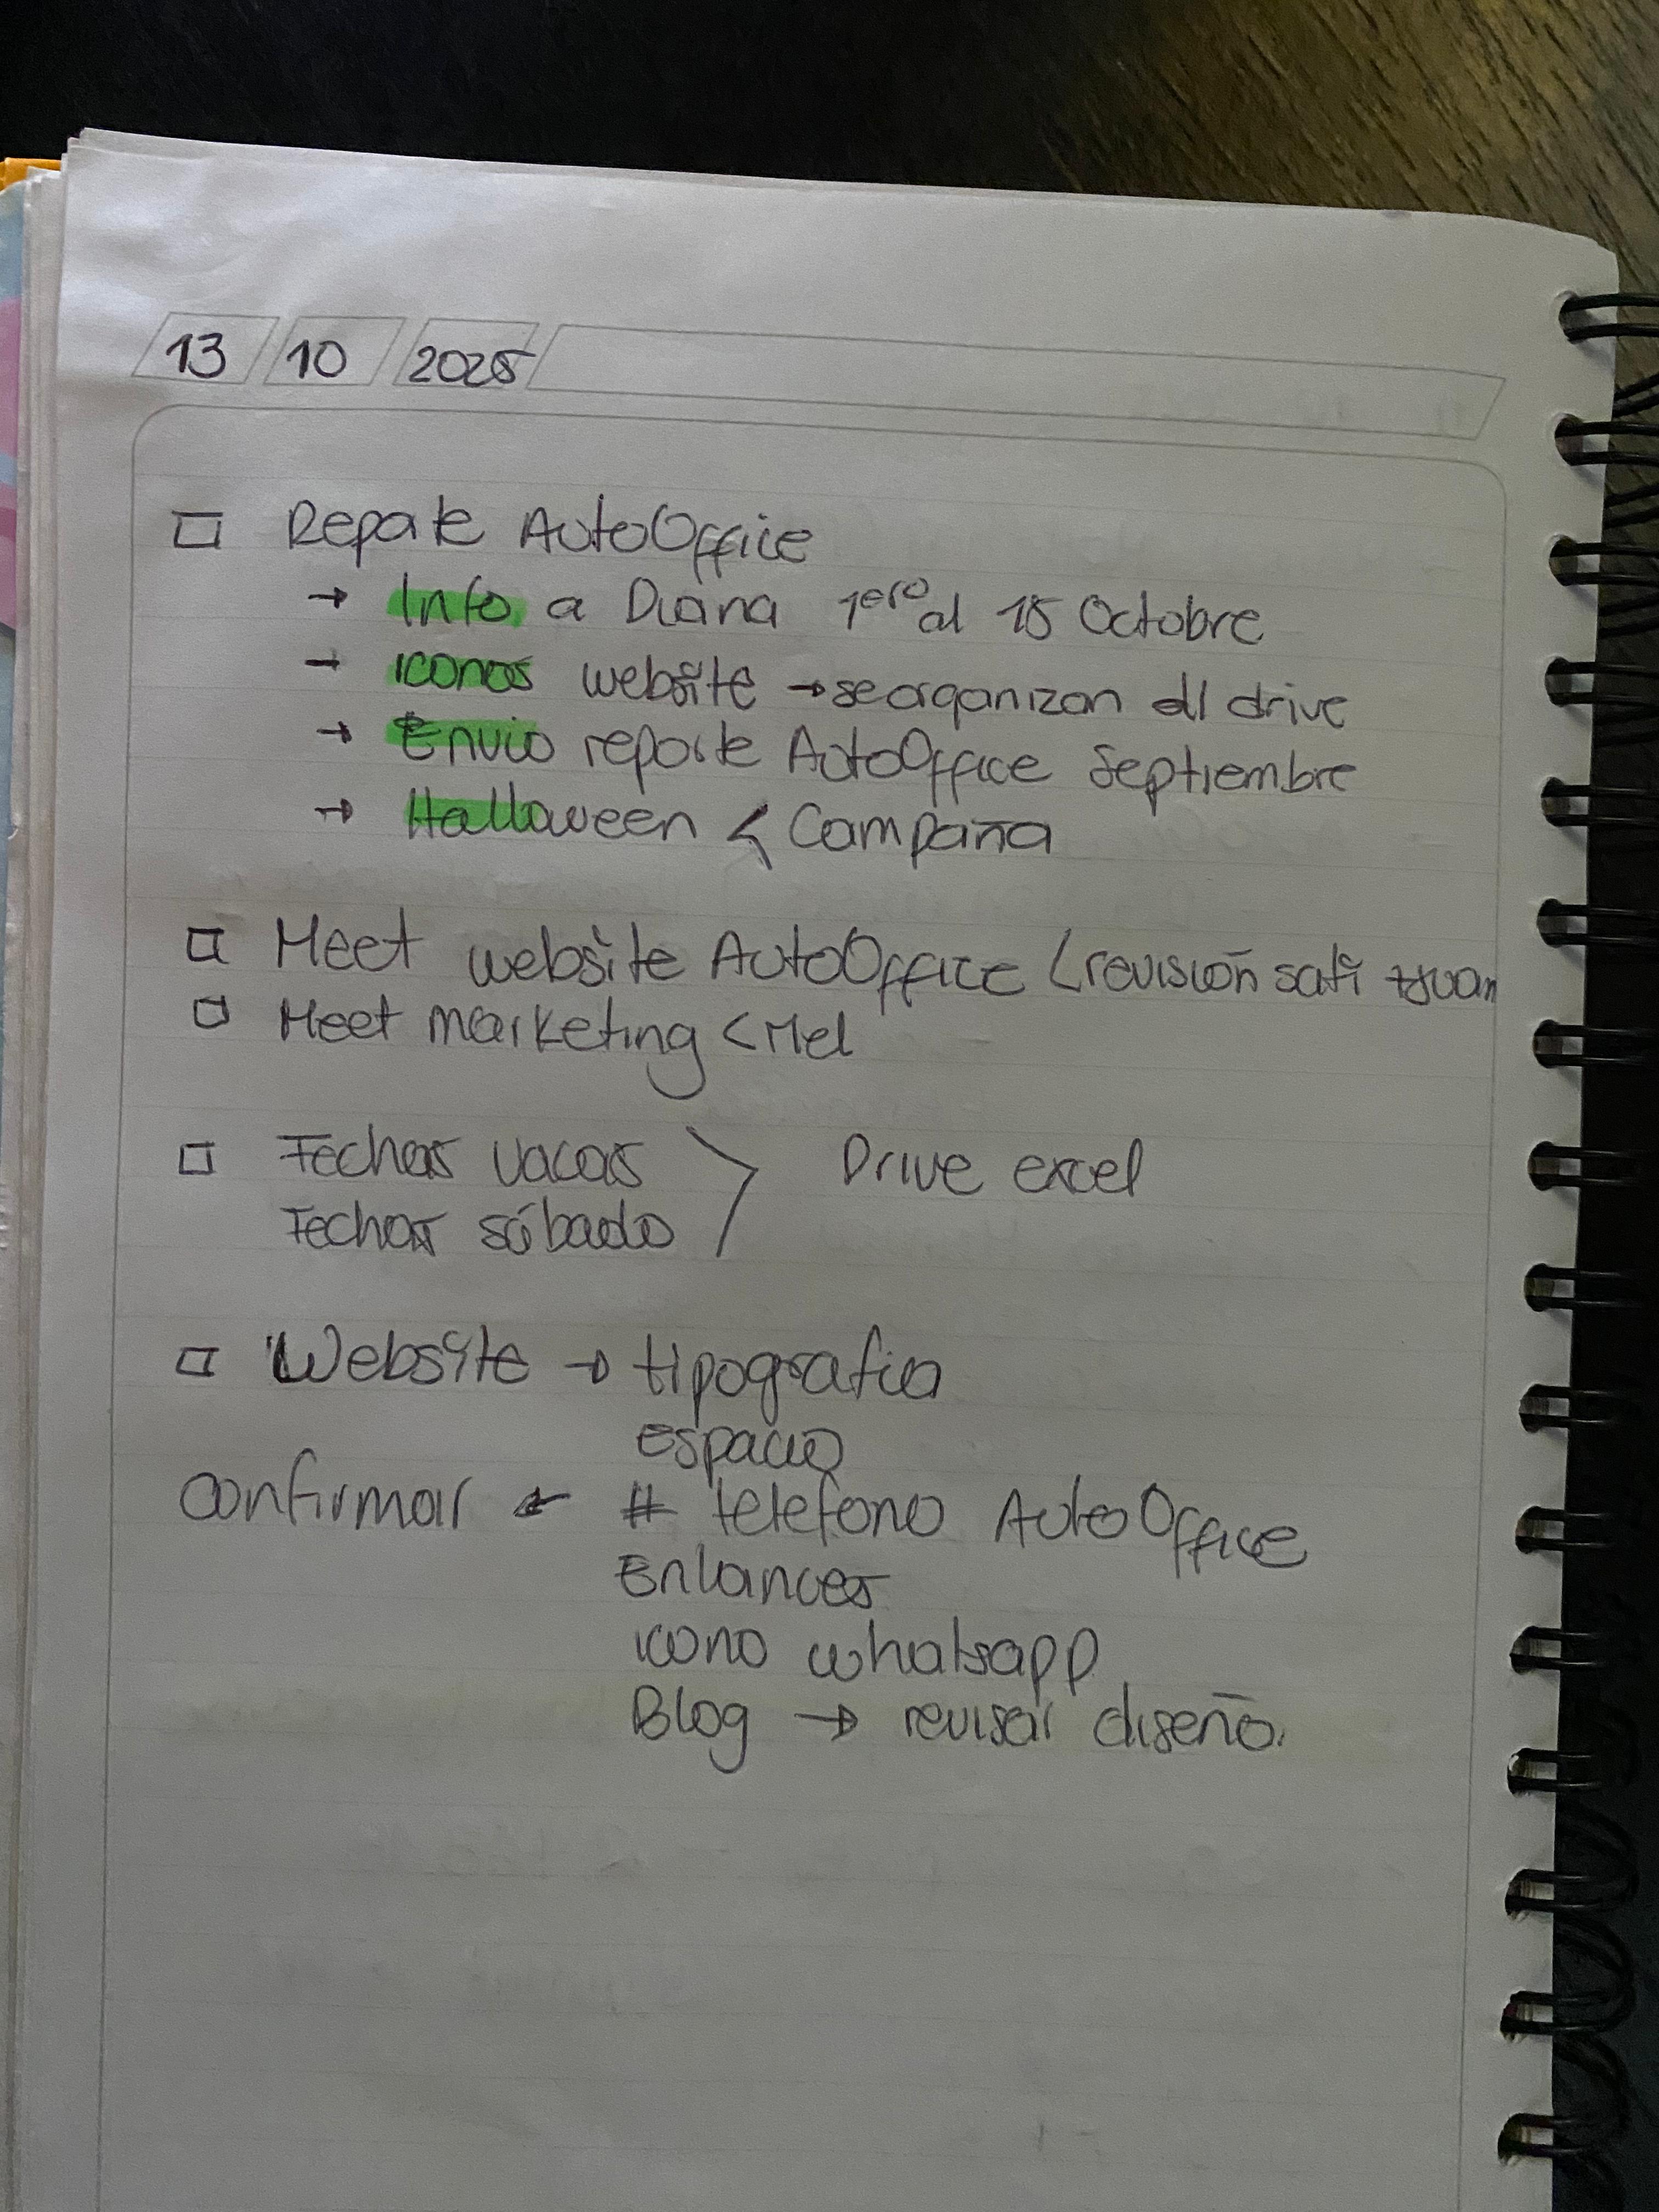 13 10 2025
□ Repote AutoOffice
→ Info a Diana 1ero al 15 Octobre
→ iconos website → se organizan dl drive
→ Envio reporte AutoOffice Septiembre
→ Halloween < Campaña
□ Meet website AutoOffice < revisión sati
□ Meet marketing < Mel
□ Fechas vacas > Drive excel
Fechas sábado
□ Website → tipografia
Espacio
Confirmar ← # telefono AutoOffice
Enlances
icono whatsapp
Blog → revisar diseño.